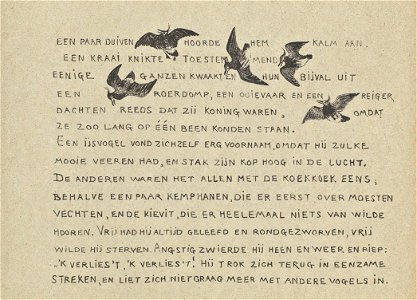 EEN PAAR DUIVEN HOORDE HEM KALM AAN.
EEN KRAAI KNIKTE TOESTEMMEND
EENIGE GANZEN KWAAKTEN HUN BIJVAL UIT
EEN ROERDOMP, EEN OOIEVAAR EN EEN REIGER,
DACHTEN REEDS DAT ZIJ KONING WAREN, OMDAT
ZE ZOO LANG OP ÉÉN BEEN KONDEN STAAN.
EEN IJSVOGEL VOND ZICHZELF ERG VOORNAAM, OMDAT HIJ ZULKE
MOOIE VEEREN HAD, EN STAK ZIJN KOP HOOG IN DE LUCHT.
DE ANDEREN WAREN HET ALLEN MET DE KOEKKOEK EENS,
BEHALVE EEN PAAR KEMPHANEN, DIE ER EERST OVER MOESTEN
VECHTEN, EN DE KIEVIT, DIE ER HEELEMAAL NIETS VAN WILDE
HOOREN. VRIJ HAD HIJ ALTIJD GELEEFD EN RONDGEZWORVEN, VRIJ
WILDE HIJ STERVEN. ANGSTIG ZWIERDE HIJ HEEN EN WEER EN RIEP:
„'K VERLIES'T, 'K VERLIES'T! HIJ TROK ZICH TERUG IN EENZAME
STREKEN, EN LIET ZICH NIET GRAAG MEER MET ANDERE VOGELS IN.